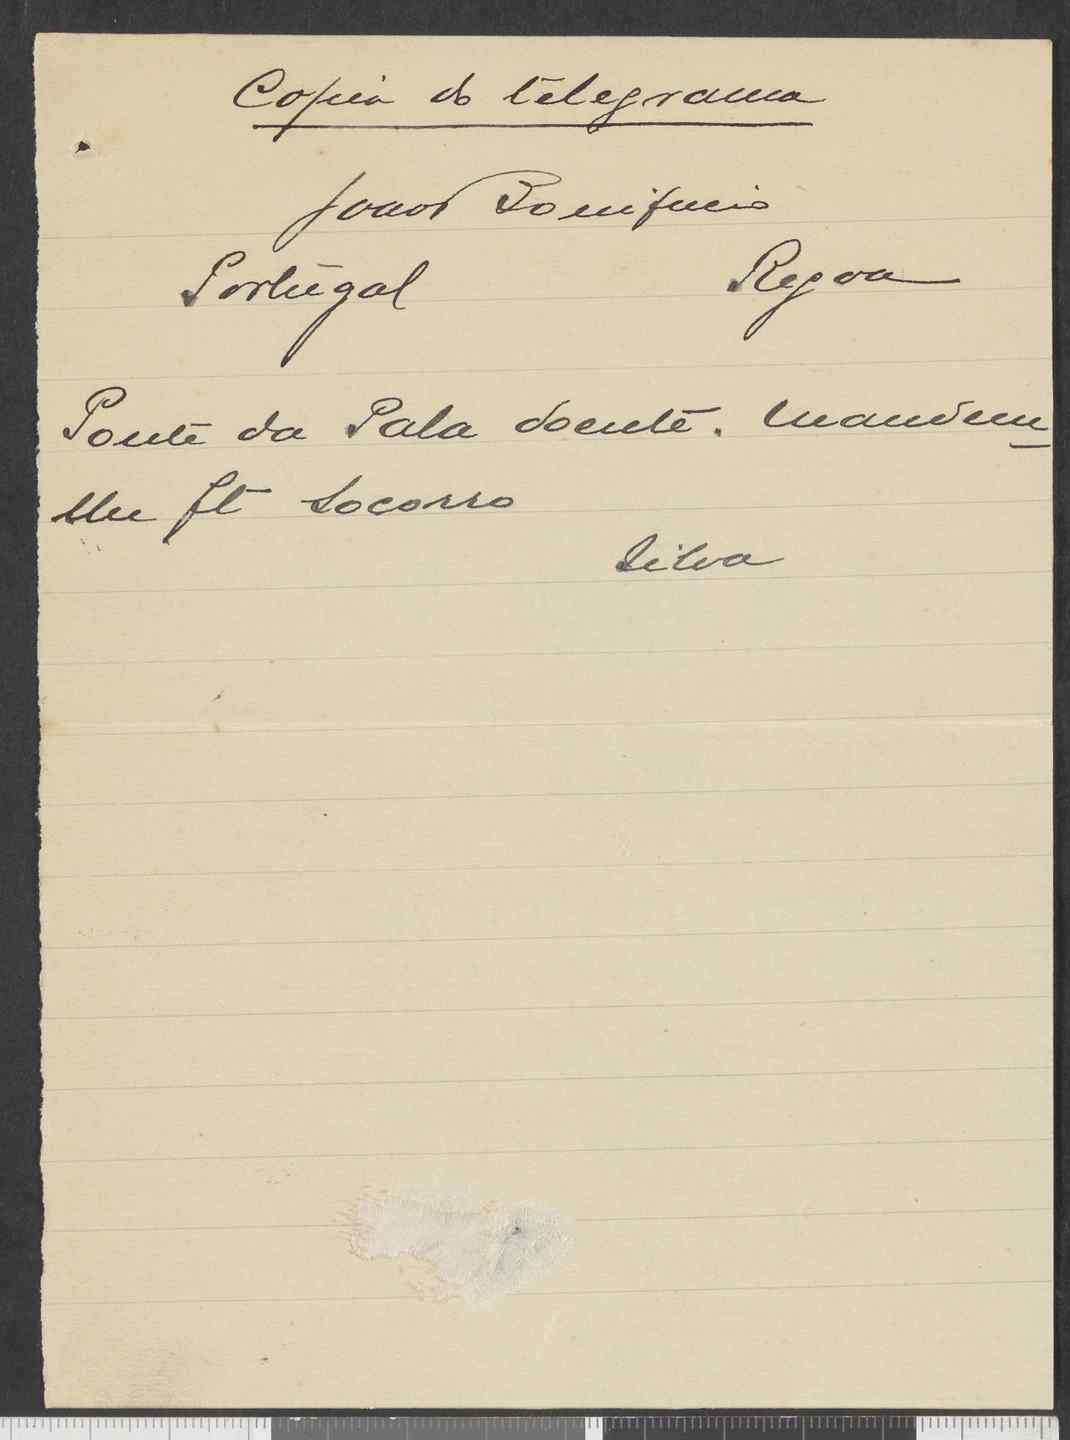 Copia do telegrama
Joao Bonifacio
Portugal Regoa
Ponte da Pala doente. Mandem
lhe socorro
Silva